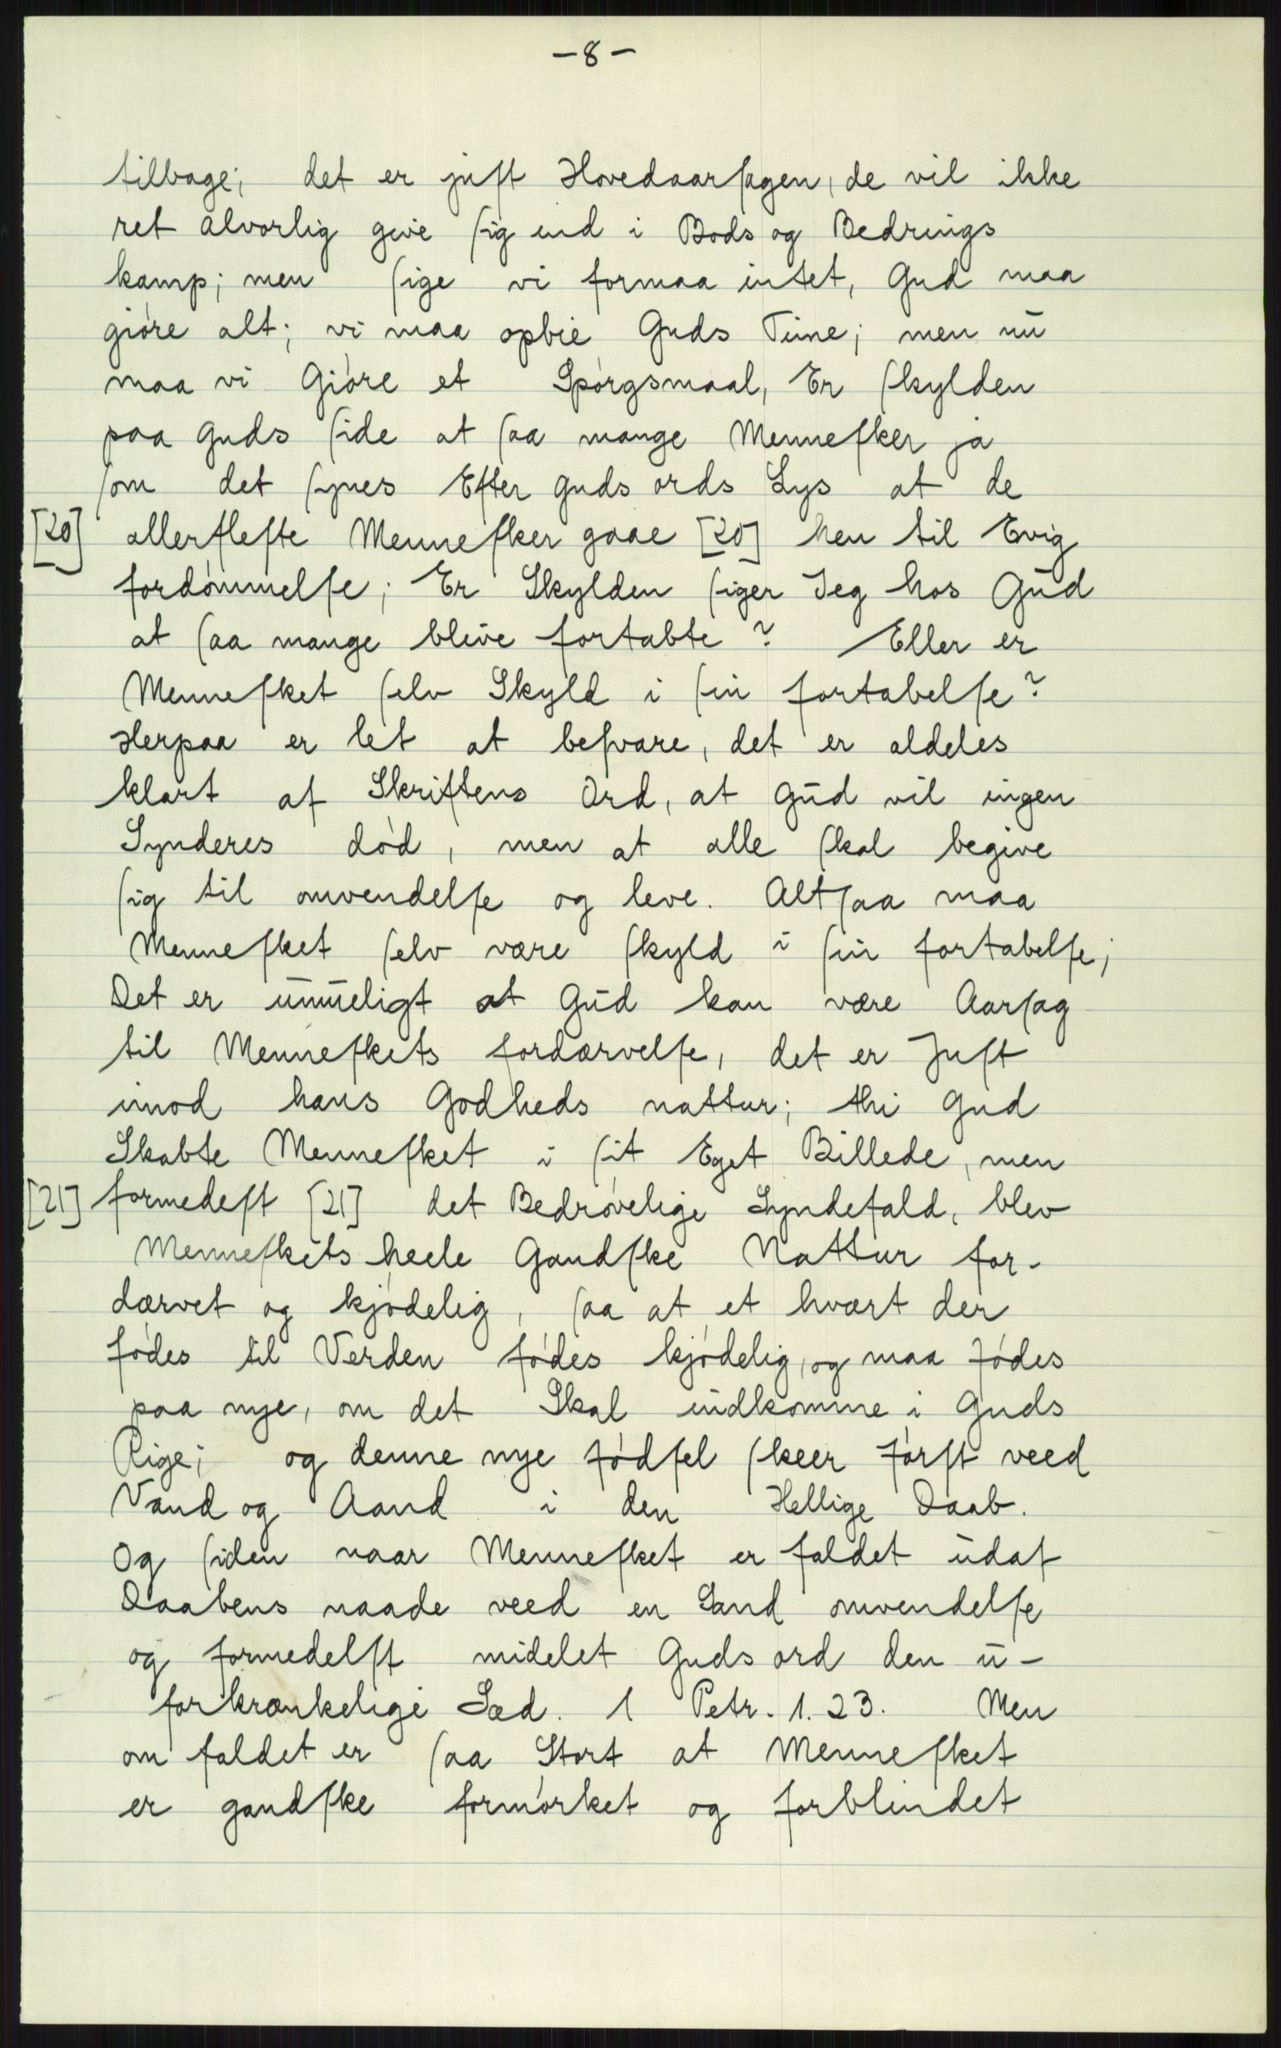 -8-
tilbage; det er juſt Hovedaarſagen, de vil ikke
ret alvorlig give ſig ind i Bods og Bedrings
kamp; men ſige vi formaa intet, Gud maa
gióre alt; vi maa opbie Guds Time; men nū
maa vi Gióre et Spórgsmaal, Er ſkylden
paa Guds ſide at ſaa mange Menneſker ja
ſom det ſynes Efter Guds ords Lys at de
[20] allerfleſte Menneſker gaae [20] hen til Evig
fordómmelſe; Er Skylden ſiger Jeg hos Gūd
at ſaa mange blive fortabte? Eller er
Menneſket ſelv Skyld i ſin fortabelſe?
Herpaa er let at beſvare, det er aldeles
klart af Skriftens Ord, at Gūd vil ingen
Synderes dód, men at alle ſkal begive
ſig til omvendelſe og leve. Altſaa maa
Menneſket ſelv være ſkyld i ſin fortabelſe;
Det er ūmūeligt at Gūd kan være Aarſag
til Menneſkets fordærvelſe, det er Juſt
imod hans Godheds nattur; thi Gud
Skabte Menneſket i ſit Eget Billede, men
[21] formedeſt [21] det Bedróvelige Syndefald, blev
Menneſkets heele Gandſke Nattur for-
dærvet og kjódelig, ſaa at et hvært der
fódes til Verden fódes kjódelig, og maa fódes
paa nye, om det Skal indkomme i Guds
Rige; og denne nye fódſel ſkeer fórſt veed
Vand og Aand i den Hellige Daab.
Og ſiden naar Menneſket er faldet ūdaf
Daabens naade veed en Sand omvendelſe
og formedelſt midelet Guds ord den ū-
forkrænkelige Sæd. 1 Petr. 1. 23. Men
om faldet er ſaa Stort at Menneſket
er gandſke formórket og forblindet